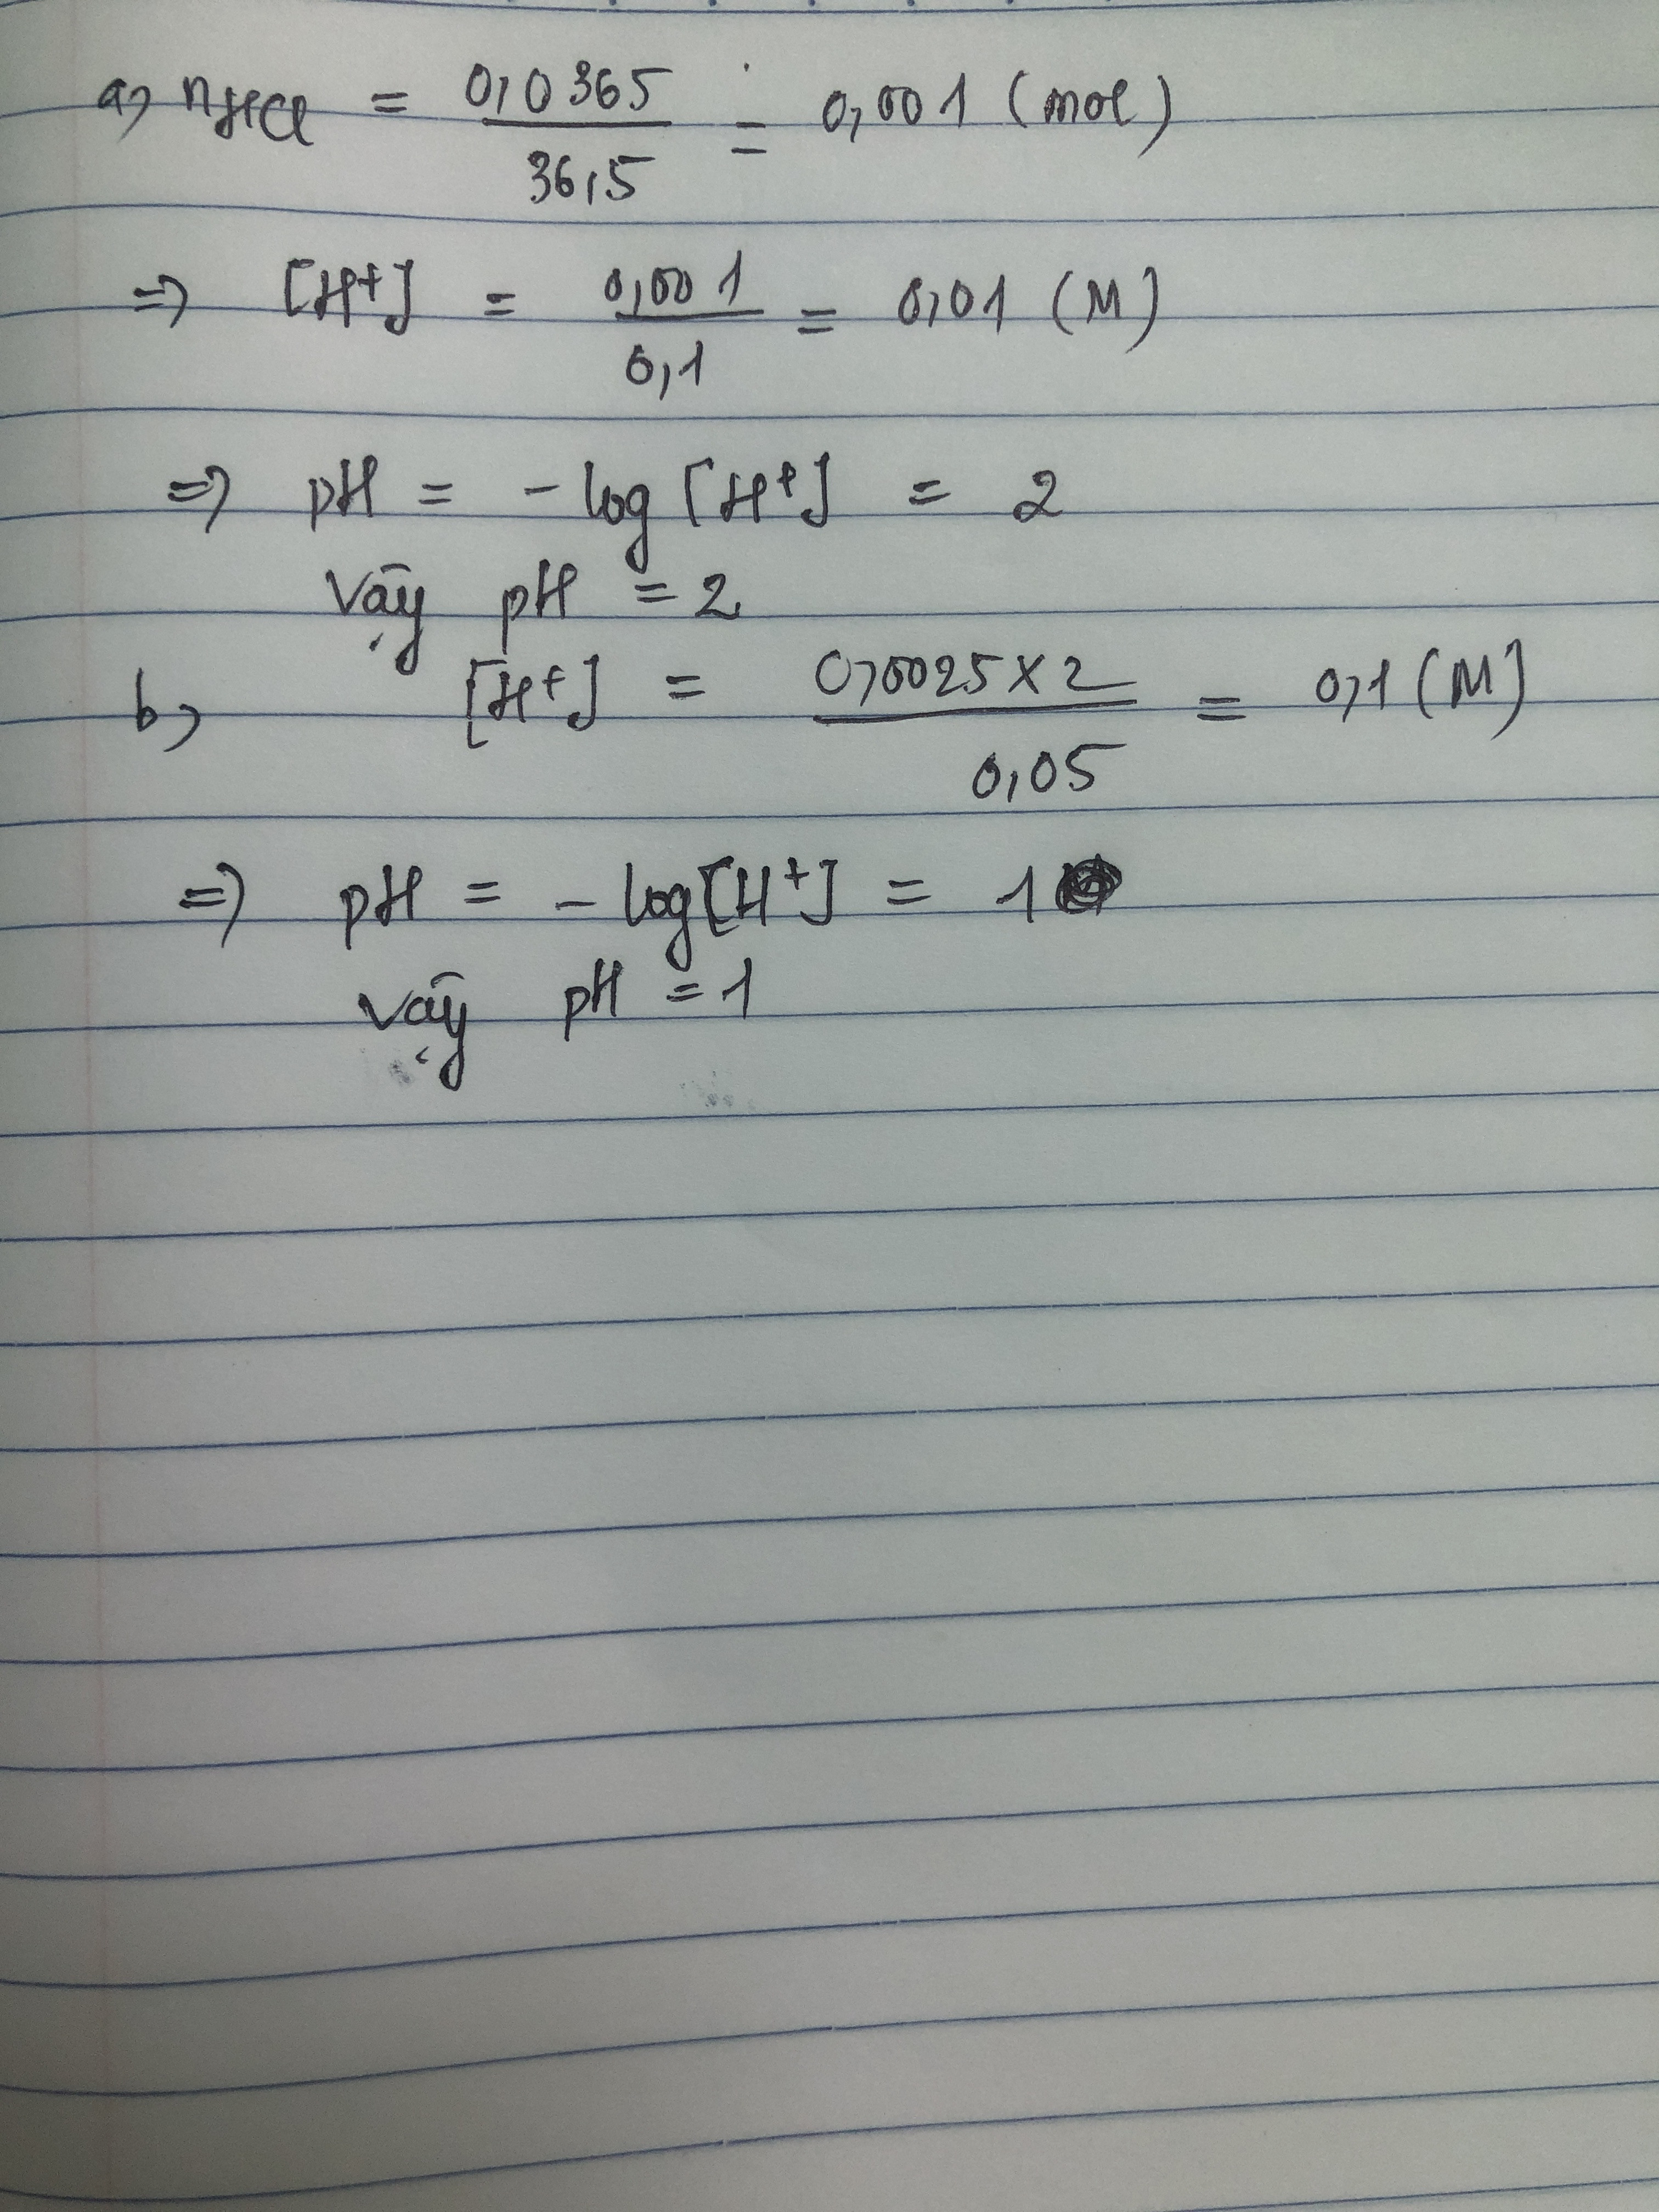 a, nHCl = 0,0365 / 36,5 = 0,001 (mol)
=> [H+] = 0,001 / 0,1 = 0,01 (M)
=> pH = - log [H+] = 2
Vậy pH = 2
b, [H+] = 0,0025 x 2 / 0,05 = 0,1 (M)
=> pH = - log [H+] = 1
Vậy pH = 1